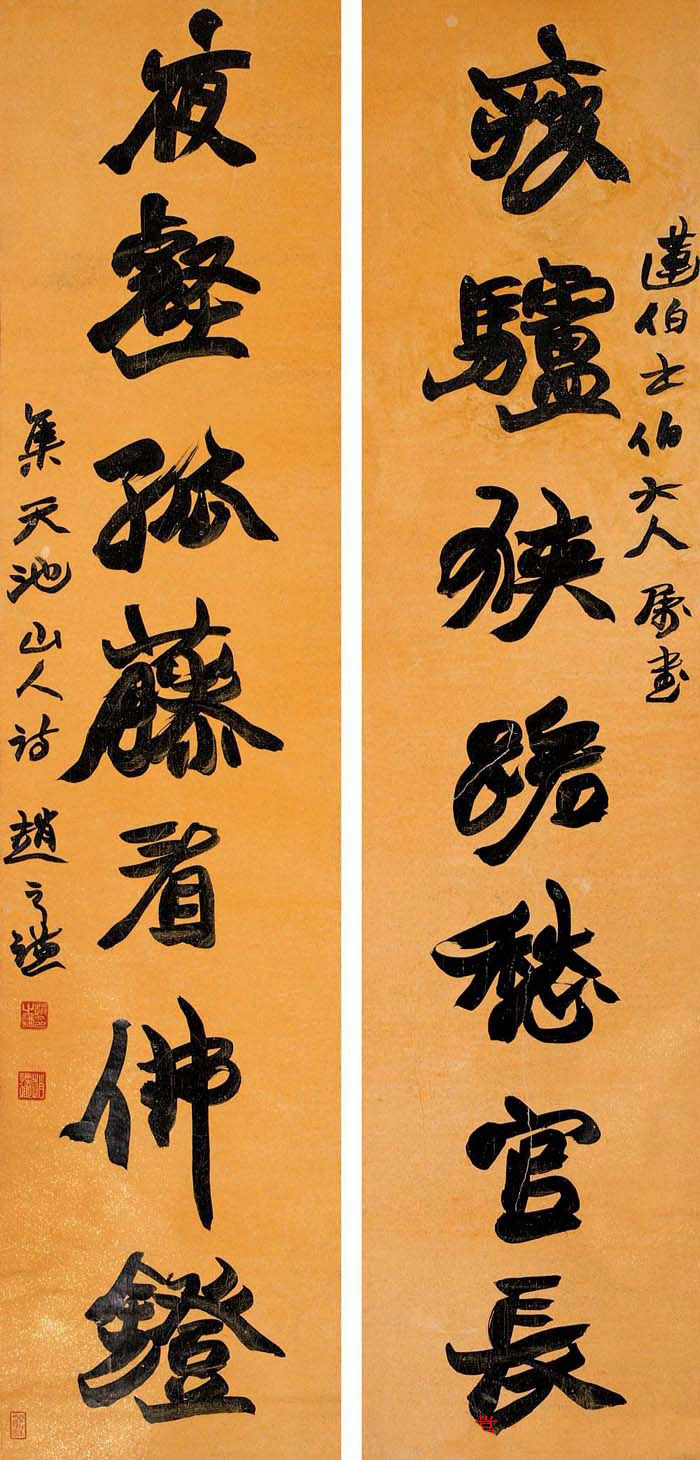 蓮伯士伯大人屬書
瘦驢狹路愁官長
夜壑孤藤看佛鐙
集天池山人詩 趙之謙